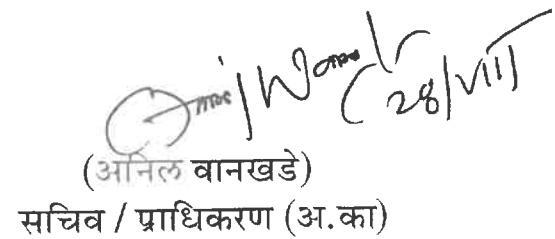 28/VIII
(अनिल वानखडे)
सचिव / प्राधिकरण (अ.का)